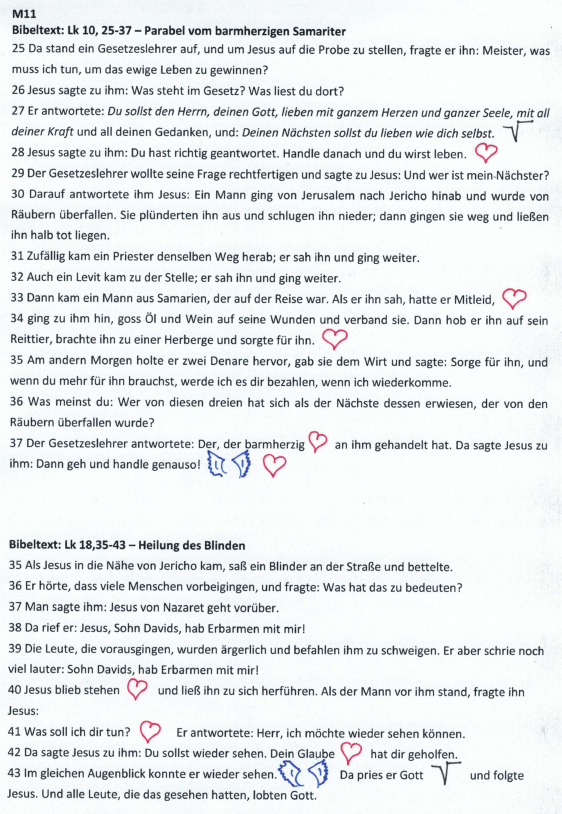 M11
Bibeltext: Lk 10, 25-37 – Parabel vom barmherzigen Samariter
25 Da stand ein Gesetzeslehrer auf, und um Jesus auf die Probe zu stellen, fragte er ihn: Meister, was
muss ich tun, um das ewige Leben zu gewinnen?
26 Jesus sagte zu ihm: Was steht im Gesetz? Was liest du dort?
27 Er antwortete: Du sollst den Herrn, deinen Gott, lieben mit ganzem Herzen und ganzer Seele, mit all
deiner Kraft und all deinen Gedanken, und: Deinen Nächsten sollst du lieben wie dich selbst.
28 Jesus sagte zu ihm: Du hast richtig geantwortet. Handle danach und du wirst leben.
29 Der Gesetzeslehrer wollte seine Frage rechtfertigen und sagte zu Jesus: Und wer ist mein Nächster?
30 Darauf antwortete ihm Jesus: Ein Mann ging von Jerusalem nach Jericho hinab und wurde von
Räubern überfallen. Sie plünderten ihn aus und schlugen ihn nieder; dann gingen sie weg und ließen
ihn halb tot liegen.
31 Zufällig kam ein Priester denselben Weg herab; er sah ihn und ging weiter.
32 Auch ein Levit kam zu der Stelle; er sah ihn und ging weiter.
33 Dann kam ein Mann aus Samarien, der auf der Reise war. Als er ihn sah, hatte er Mitleid,
34 ging zu ihm hin, goss Öl und Wein auf seine Wunden und verband sie. Dann hob er ihn auf sein
Reittier, brachte ihn zu einer Herberge und sorgte für ihn.
35 Am andern Morgen holte er zwei Denare hervor, gab sie dem Wirt und sagte: Sorge für ihn, und
wenn du mehr für ihn brauchst, werde ich es dir bezahlen, wenn ich wiederkomme.
36 Was meinst du: Wer von diesen dreien hat sich als der Nächste dessen erwiesen, der von den
Räubern überfallen wurde?
37 Der Gesetzeslehrer antwortete: Der, der barmherzig an ihm gehandelt hat. Da sagte Jesus zu
ihm: Dann geh und handle genauso!
Bibeltext: Lk 18,35-43 – Heilung des Blinden
35 Als Jesus in die Nähe von Jericho kam, saß ein Blinder an der Straße und bettelte.
36 Er hörte, dass viele Menschen vorbeigingen, und fragte: Was hat das zu bedeuten?
37 Man sagte ihm: Jesus von Nazaret geht vorüber.
38 Da rief er: Jesus, Sohn Davids, hab Erbarmen mit mir!
39 Die Leute, die vorausgingen, wurden ärgerlich und befahlen ihm zu schweigen. Er aber schrie noch
viel lauter: Sohn Davids, hab Erbarmen mit mir!
40 Jesus blieb stehen und ließ ihn zu sich herführen. Als der Mann vor ihm stand, fragte ihn
Jesus:
41 Was soll ich dir tun? Er antwortete: Herr, ich möchte wieder sehen können.
42 Da sagte Jesus zu ihm: Du sollst wieder sehen. Dein Glaube hat dir geholfen.
43 Im gleichen Augenblick konnte er wieder sehen. Da pries er Gott und folgte
Jesus. Und alle Leute, die das gesehen hatten, lobten Gott.